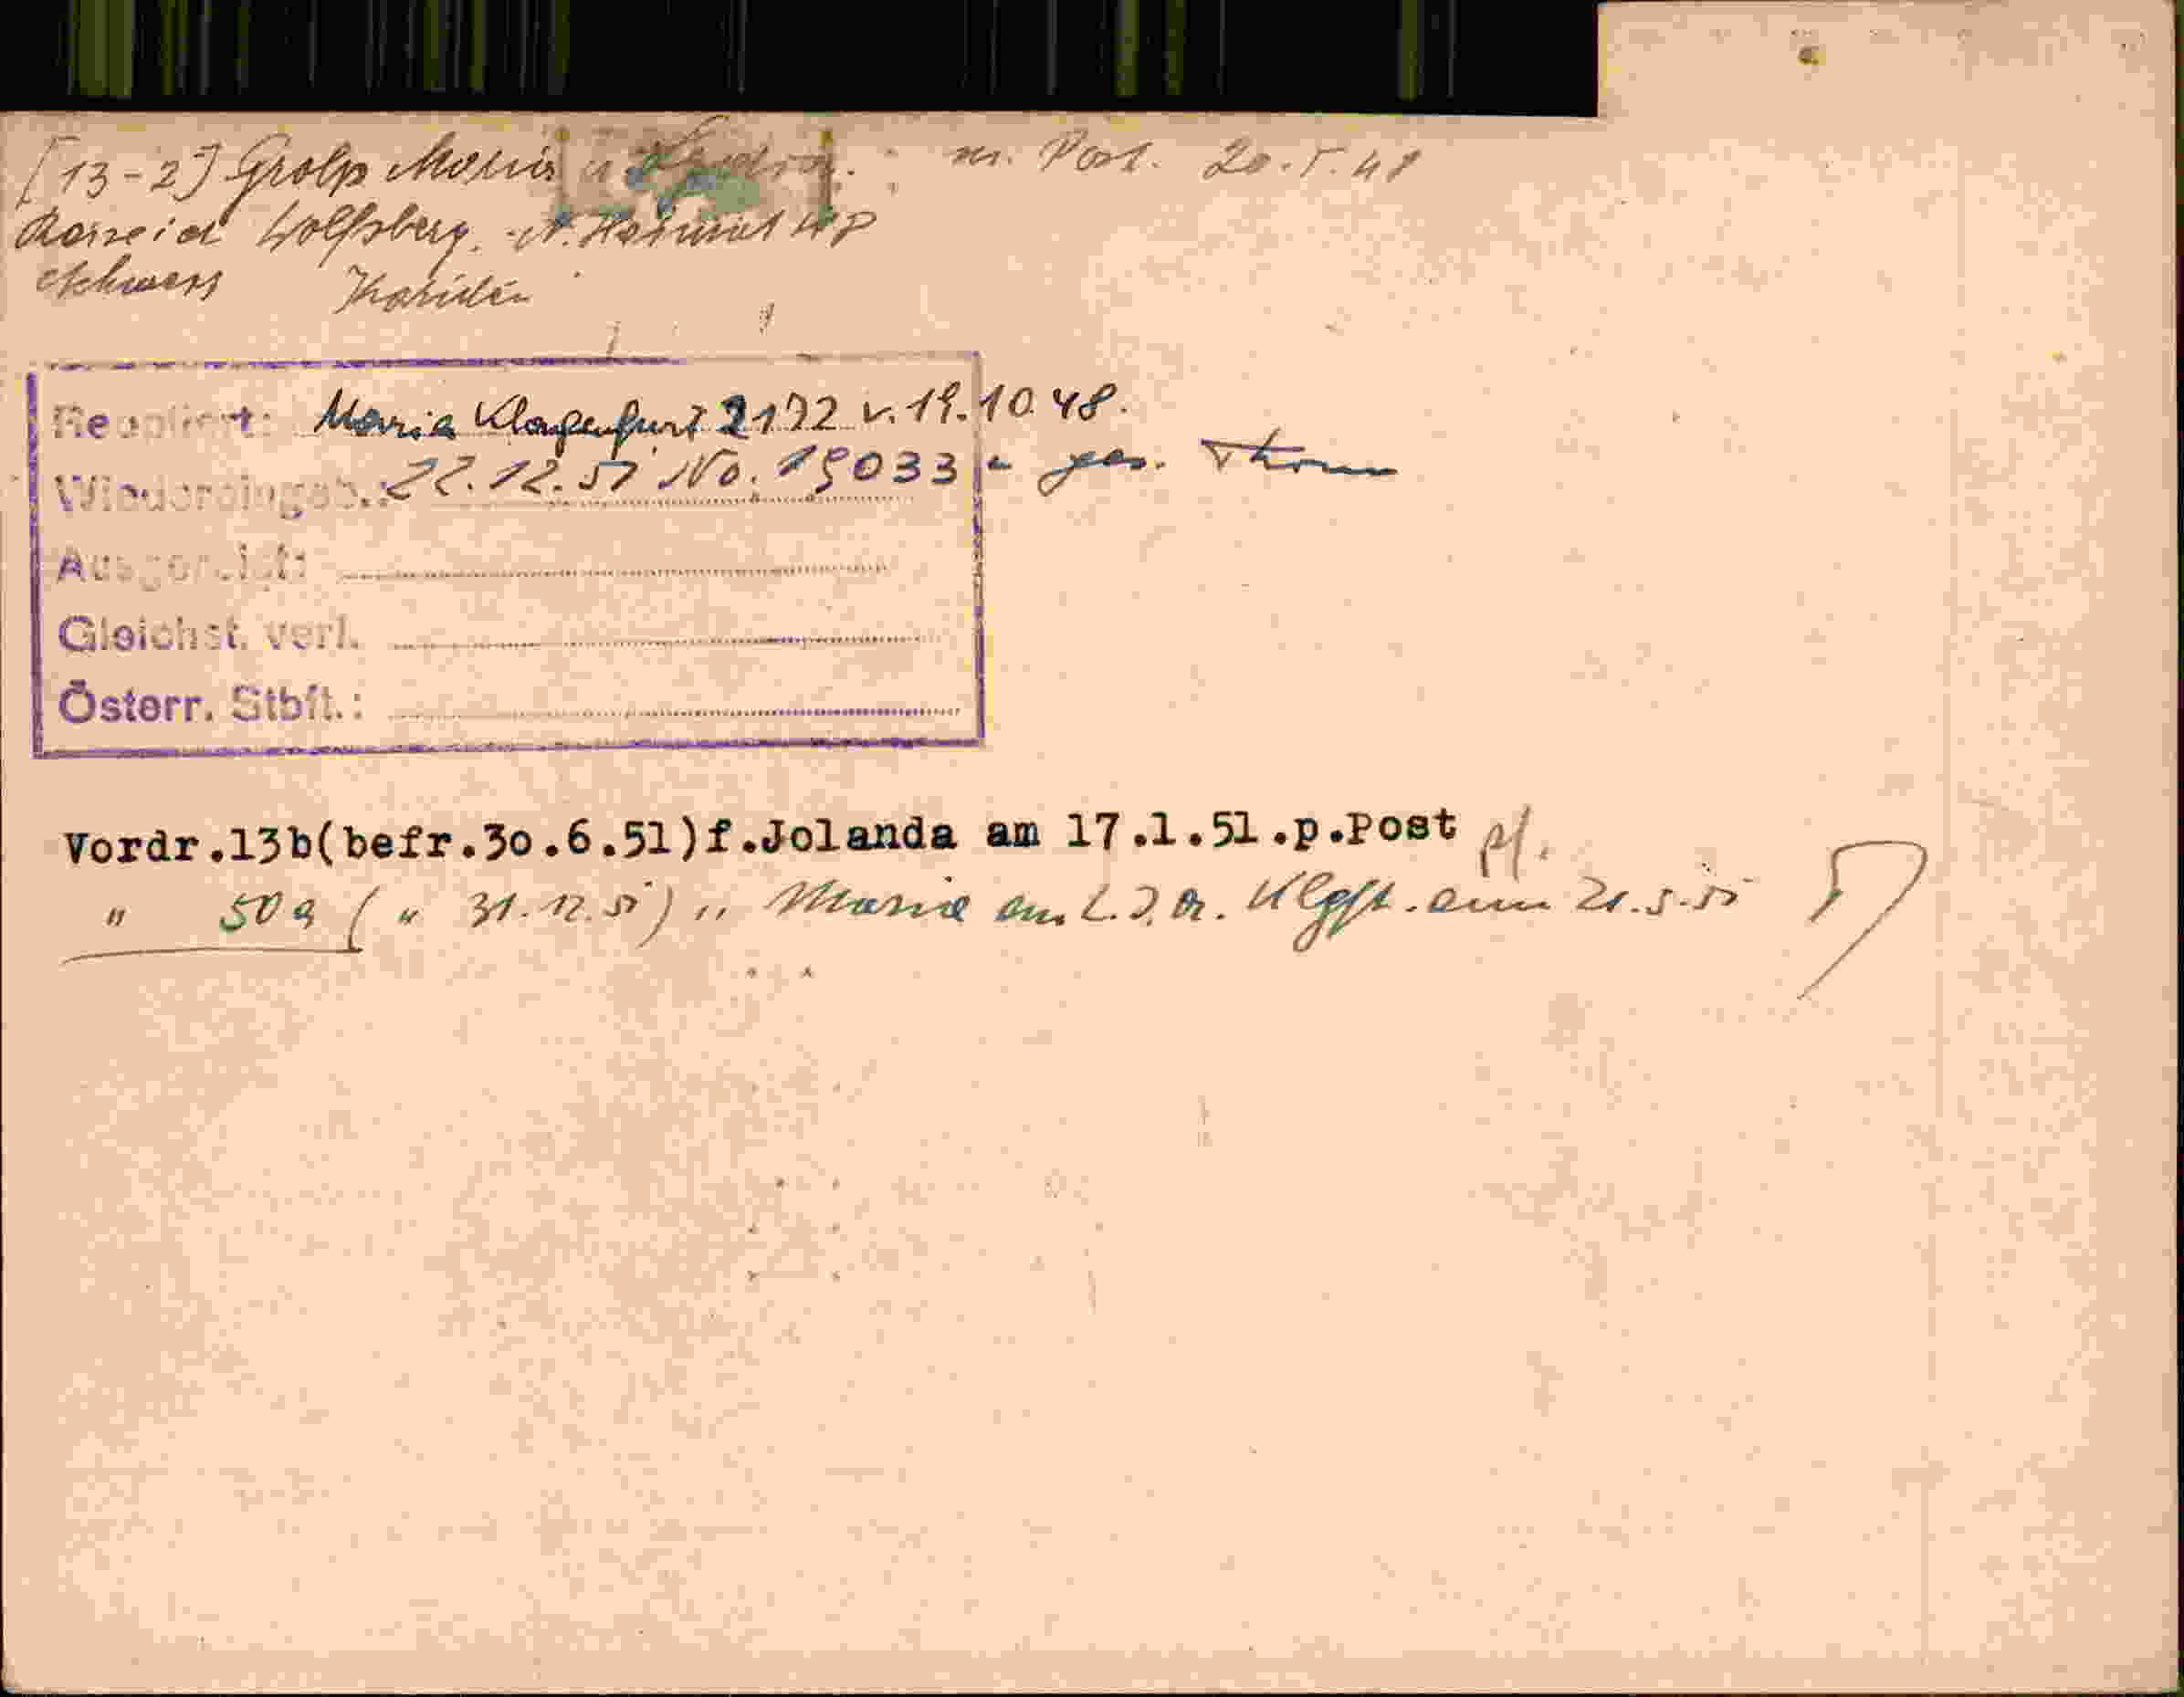 [13-2] Grolp Maria u. : m. Post. 20.5.48
Wolfsberg.
Kärnten
Reoptiert: Maria Klagenfurt 2172 v. 19.10.48.
Wiedereingeb.: 22.12.51 No. 15033 - ges. Thom
Ausgereist:
Gleichst. verl.
Österr. Stbft.:
Vordr.13b(befr.30.6.51)f.Jolanda am 17.1.51.p.Post
" 50a ( " 31.12.51) " Maria am Klgft. am 21.5.51